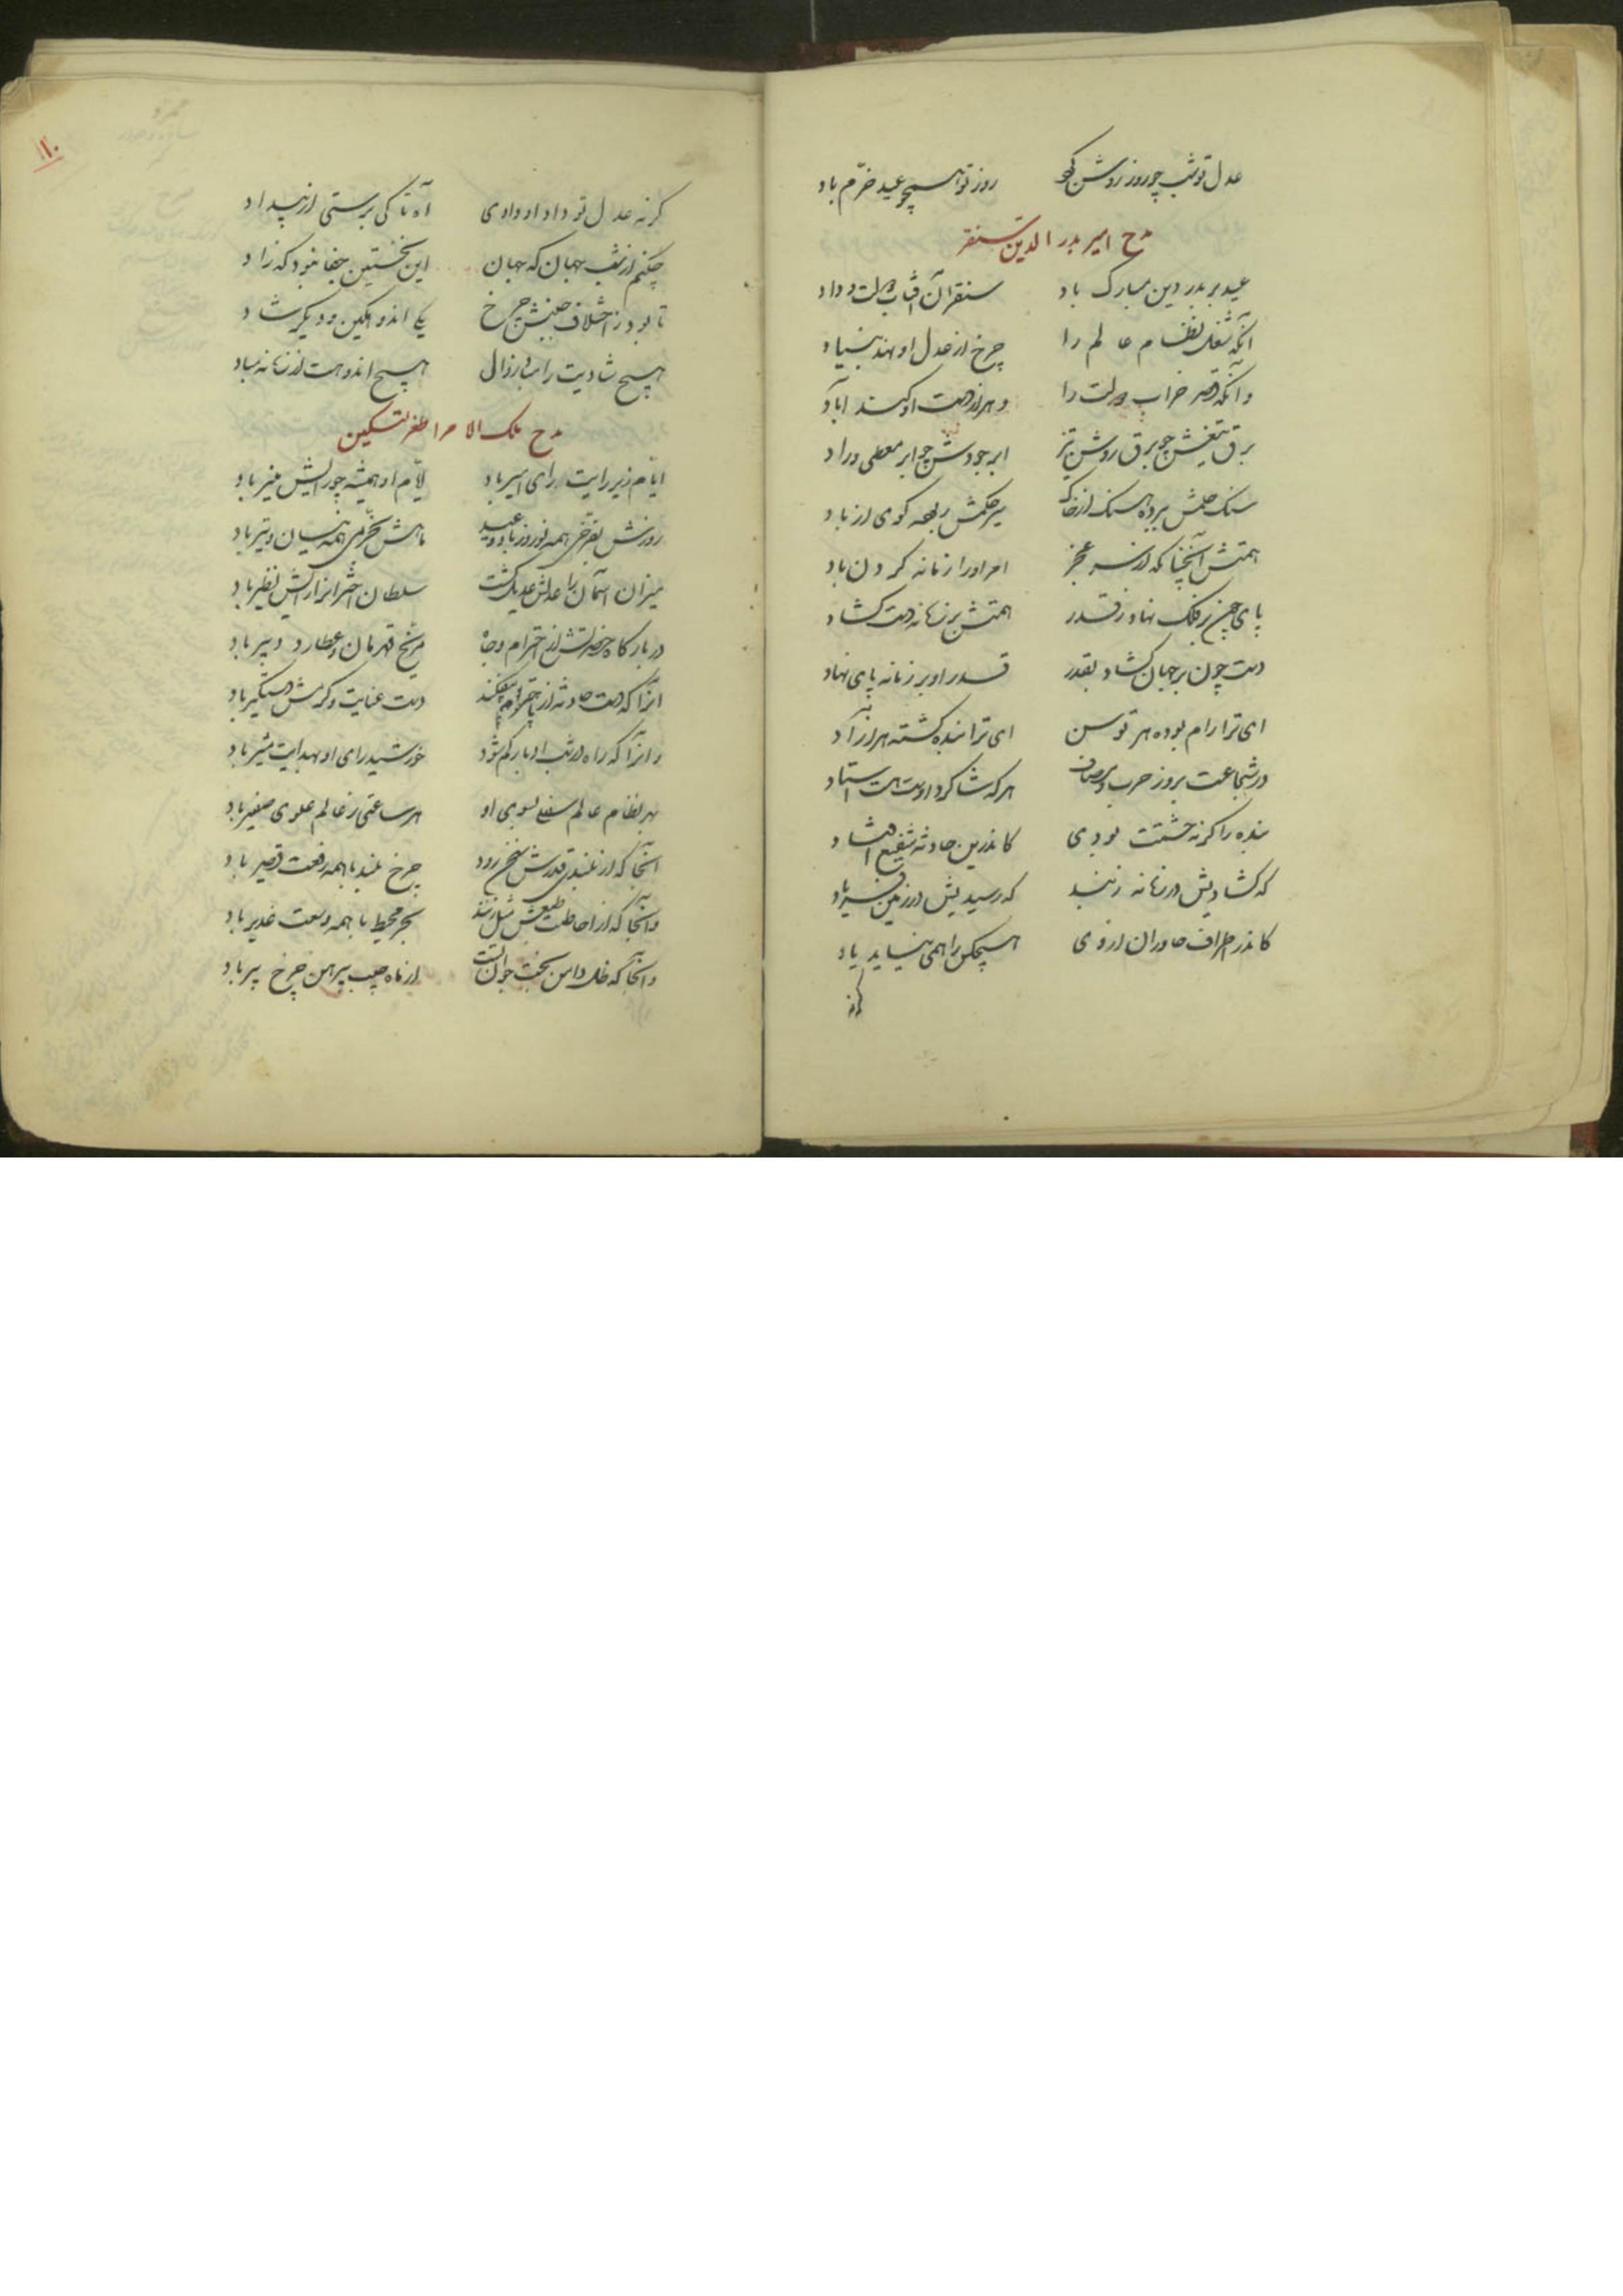 عدل تو شب چو روز روشن کرد روز تو همچو عید خرّم باد
مدح امیر بدر الدین سنقر
عید بر بدر دین مبارک باد سنقر آن آفتاب دولت و داد
آنکه شغل نظام عالم را چرخ از عدل او نهد بنیاد
وآنکه قصر خراب دولت را دهر از دست او کند آباد
برق تیغش چو برق روشن و تیز ابر جودش چو ابر معطی و راد
سنک حلمش ببرده سنک از خاک سیر حکمش ربوده کوی از باد
همتش آنچنانکه از سر عجز امر او را زمانه کردن باد
پای چون بر فلک نهاد ز قدر همتش بر زمانه دست کشاد
دست چون بر جهان کشاد بقدر قدر او بر زمانه پای نهاد
ای ترا رام بوده هر توسن ای ترا بنده کشته هر آزاد
در شجاعت بروز حرب و مصاف هر که شاکرد اوست هست استاد
بنده را کر نه حشمتت بودی کاندرین حادثه شفیع افتاد
که کشادیش در زمانه ز بند که رسیدیش در زمین فریاد
کاندر اطراف خاوران از وی هیچکس را همی نیاید یاد
کرنه
۱۱۰
کر نه عدل تو داد او دادی آه تا کی برستی از بیداد
چکنم از شب جهان که جهان این نخستین جفا نبود که زاد
تا بود ز اختلاف جنبش چرخ یکی اندوهکین و دیکر شاد
هیچ شادیت را مباد زوال هیچ اندوهت از زمانه مباد
مدح ملک الامرا طغرلتکین
ایّام زیر رایت رای امیر باد ایّام او همیشه چو رایش منیر باد
روزش بفرّخی همه نوروز باد و عید ماهش بخرّمی همه نیسان و تیر باد
میزان آسمان را عدلش عدیل کشت سلطان اختران را رایش نظیر باد
در بارکاه حضرتش از احترام و جاه مرّیخ قهرمان و عطارد دبیر باد
آنرا که دست حادثه از پا در افکند دست عنایت و کرمش دستکیر باد
وانرا که راه در شب ادبار کم شود خورشید رای او بهدایت مشیر باد
بهر نظام عالم سفلی بسوی او هر ساعتی ز عالم علوی صفیر باد
آنجا که از بلندی قدرش سخن رود چرخ بلند با همه رفعت قصیر باد
وآنجا که از احاطت طبعش مثل زنند بحر محیط با همه وسعت غدیر باد
وآنجا که ظل دامن بخت جوان اوست از ماه جیب پیرهن چرخ پیر باد